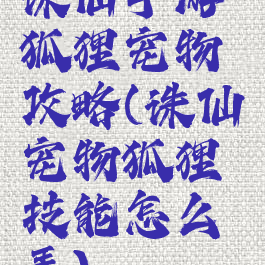 诛仙手游
狐狸宠物
攻略(诛仙
宠物狐狸
技能怎么